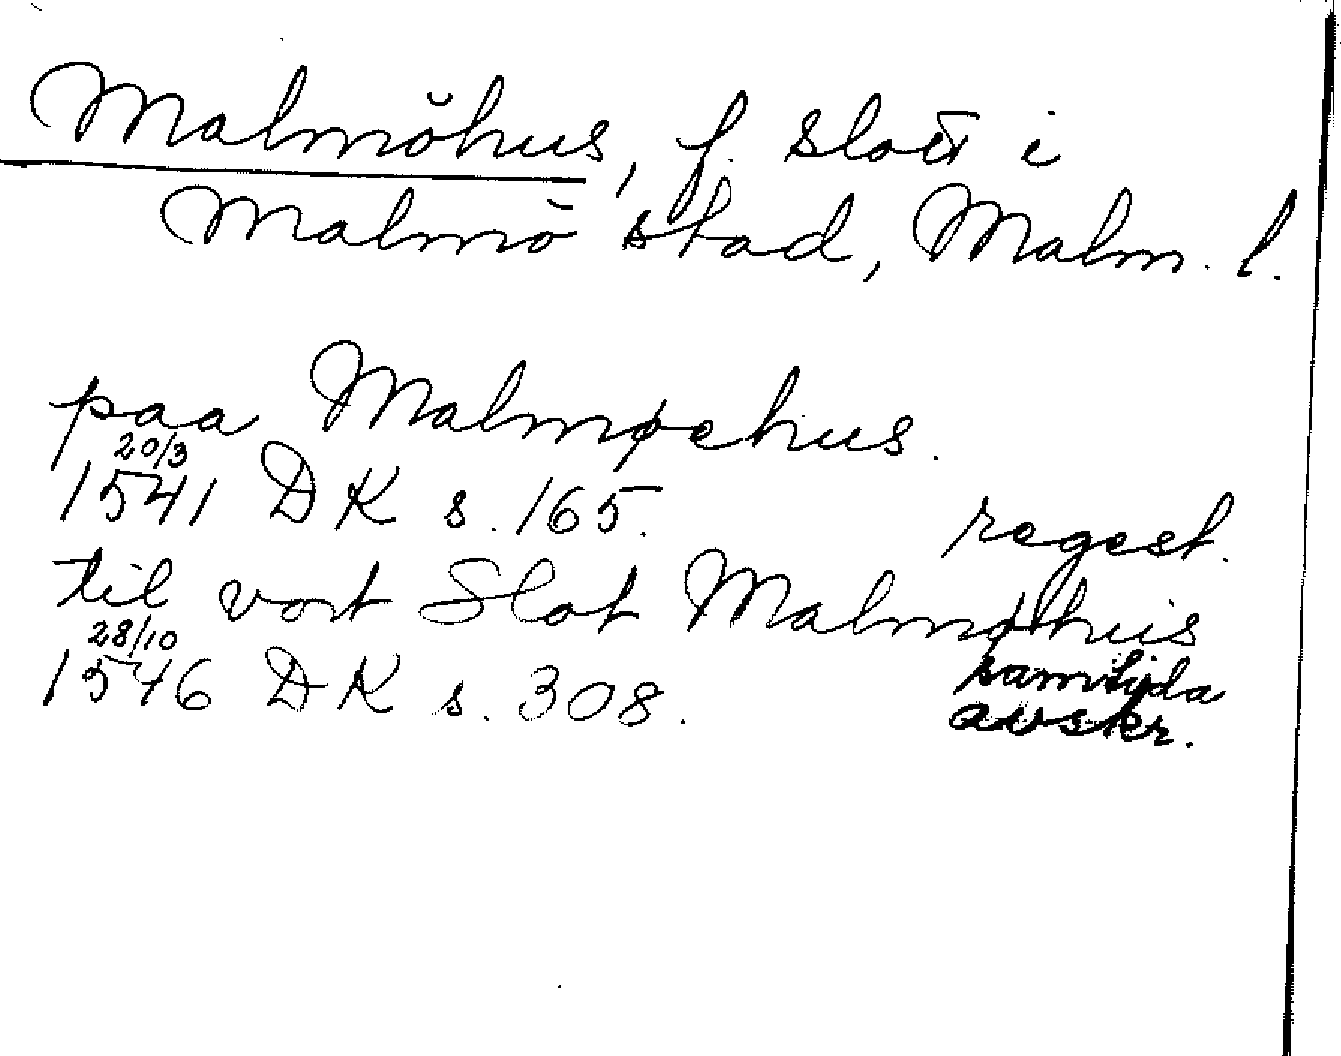 Malmöhus, f. slott i
Malmö stad, Malm. l.
paa Malmøehus.
20/3
1541 DK s. 165. regest.
til vort Slot Malmøhuis
28/10
1546 DK s. 308. samtida
avskr.